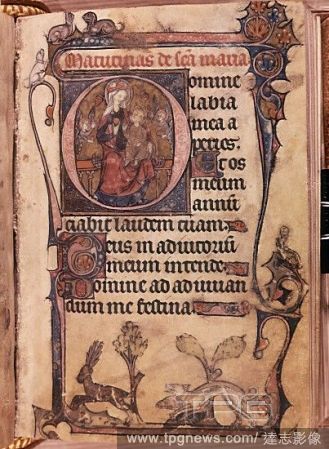 Matutinas de sc̄a maria
Domine
labia
mea a
peries. Et os
meum
annū
ciabit laudem tuam.
Deus in adiutoriū
meum intende.
Domine ad adiuuan
dum me festina.
TPG
www.tpgnews.com/ 達志影像